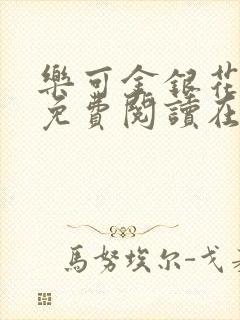 樂可金銀花
免費閱讀在
馬努埃尔-戈